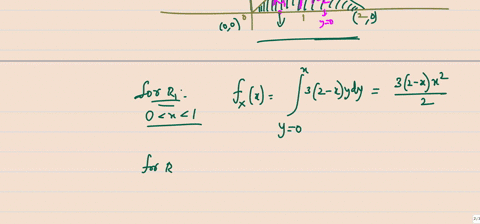 (0,0) 0 1 y=0 (2,0)
for R₁: f_X(x) = ∫_{y=0}^{x} 3(2-x)y dy = 3(2-x)x²/2
0<x<1
for R